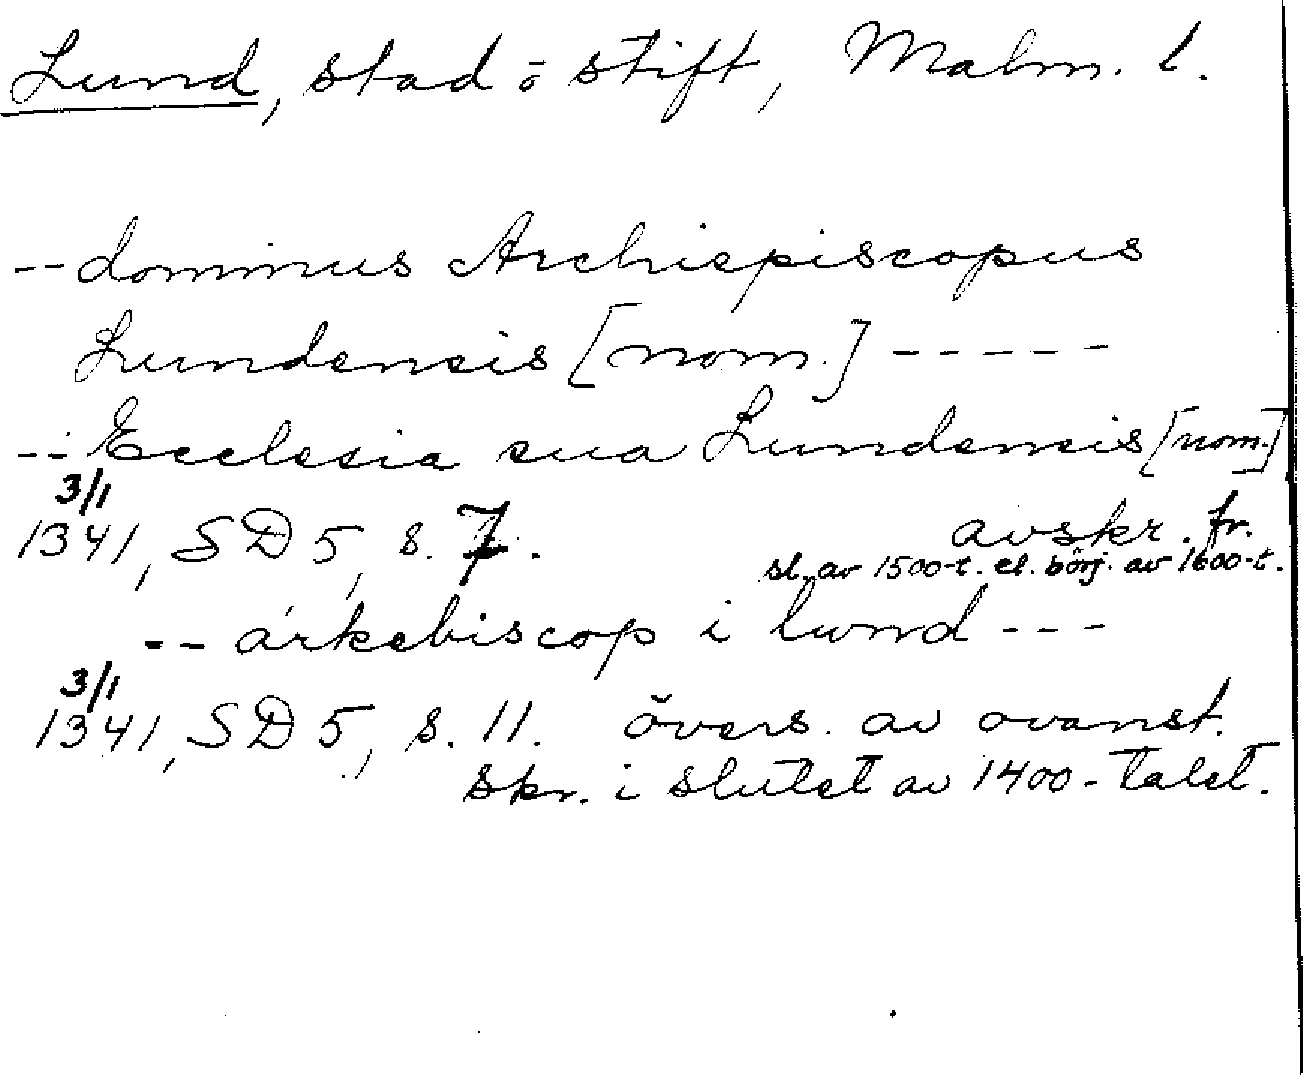 Lund, stad o stift, Malm. l.
-- dominus Archiepiscopus
Lundensis [nom.] -----
-- Ecclesia sua Lundensis [nom.]
3/1
1341, SD 5, s. 7. avskr. fr.
sl. av 1500-t. el. börj. av 1600-t.
-- arkebiscop i lund ---
3/1
1341, SD 5, s. 11. övers. av ovanst.
skr. i slutet av 1400-talet.